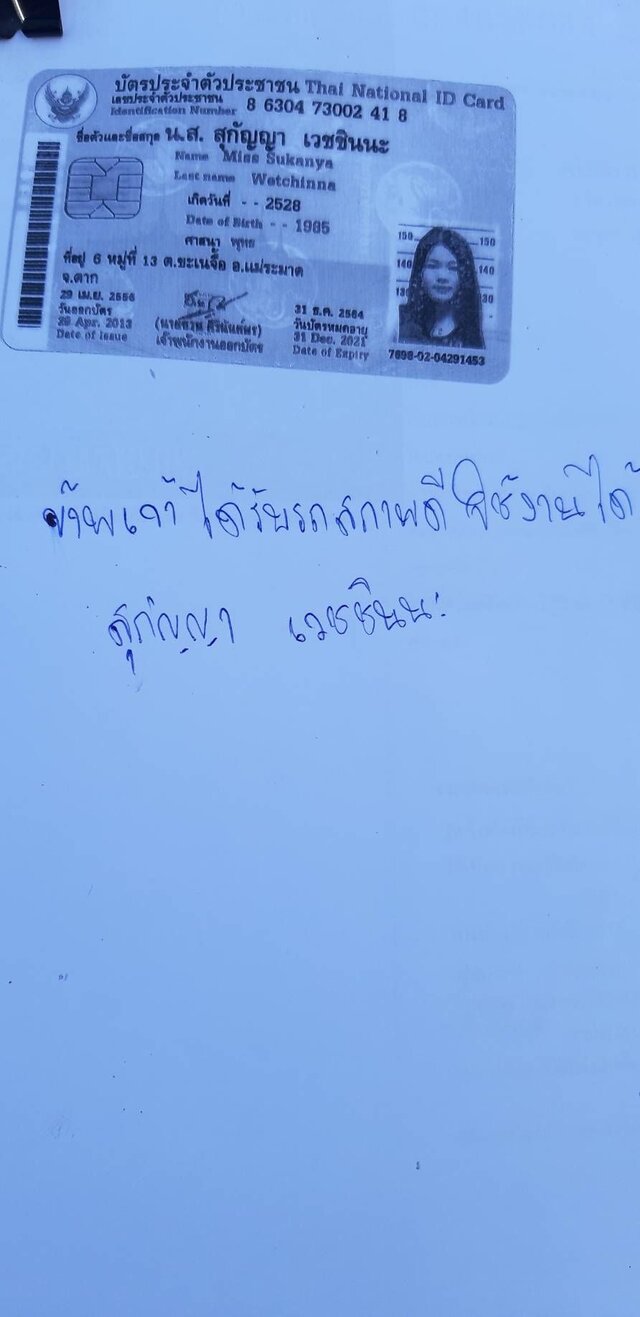 บัตรประจำตัวประชาชน Thai National ID Card
เลขประจำตัวประชาชน
Identification Number 8 6304 73002 41 8
ชื่อตัวและชื่อสกุล น.ส. สุกัญญา เวชชินนะ
Name Miss Sukanya
Last name Wetchinna
เกิดวันที่ - - 2528
Date of Birth - - 1985
ศาสนา พุทธ
ที่อยู่ 6 หมู่ที่ 13 ต.ขะเนจื้อ อ.แม่ระมาด
จ.ตาก
29 เม.ย. 2556
วันออกบัตร
29 Apr. 2013
Date of Issue
เจ้าพนักงานออกบัตร
31 ธ.ค. 2564
วันบัตรหมดอายุ
31 Dec. 2021
Date of Expiry
150 150
140 140
130 130
7698-02-04291453
ข้าพเจ้าได้รับรถสภาพดี ใช้งานได้
สุกัญญา เวชชินนะ